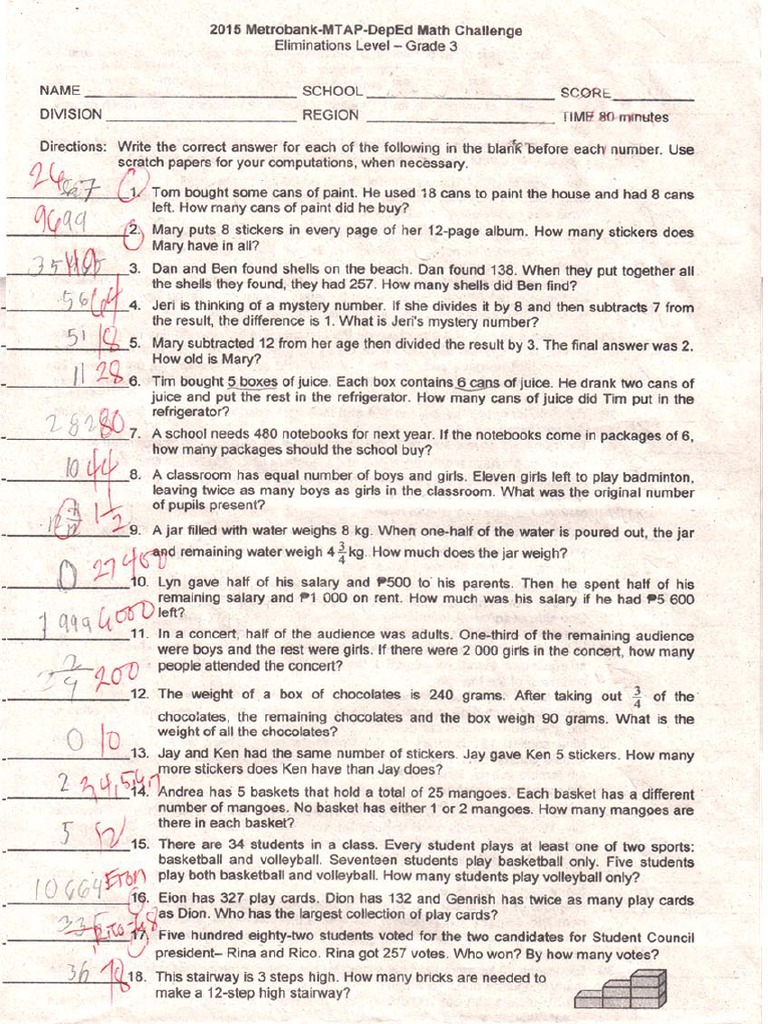 2015 Metrobank-MTAP-DepEd Math Challenge
Eliminations Level – Grade 3
NAME SCHOOL SCORE
DIVISION REGION TIME 80 minutes
Directions: Write the correct answer for each of the following in the blank before each number. Use
scratch papers for your computations, when necessary.
26 1. Tom bought some cans of paint. He used 18 cans to paint the house and had 8 cans
left. How many cans of paint did he buy?
96 99 2. Mary puts 8 stickers in every page of her 12-page album. How many stickers does
Mary have in all?
3. Dan and Ben found shells on the beach. Dan found 138. When they put together all
the shells they found, they had 257. How many shells did Ben find?
56 64 4. Jeri is thinking of a mystery number. If she divides it by 8 and then subtracts 7 from
the result, the difference is 1. What is Jeri's mystery number?
51 18 5. Mary subtracted 12 from her age then divided the result by 3. The final answer was 2.
How old is Mary?
11 28 6. Tim bought 5 boxes of juice. Each box contains 6 cans of juice. He drank two cans of
juice and put the rest in the refrigerator. How many cans of juice did Tim put in the
refrigerator?
282 80 7. A school needs 480 notebooks for next year. If the notebooks come in packages of 6,
how many packages should the school buy?
10 44 8. A classroom has equal number of boys and girls. Eleven girls left to play badminton,
leaving twice as many boys as girls in the classroom. What was the original number
of pupils present?
1 1/2 9. A jar filled with water weighs 8 kg. When one-half of the water is poured out, the jar
and remaining water weigh 4 3/4 kg. How much does the jar weigh?
0 27 400 10. Lyn gave half of his salary and ₱500 to his parents. Then he spent half of his
remaining salary and ₱1 000 on rent. How much was his salary if he had ₱5 600
left?
1 999 6000 11. In a concert, half of the audience was adults. One-third of the remaining audience
were boys and the rest were girls. If there were 2 000 girls in the concert, how many
people attended the concert?
200 12. The weight of a box of chocolates is 240 grams. After taking out 3/4 of the
chocolates, the remaining chocolates and the box weigh 90 grams. What is the
weight of all the chocolates?
0 10 13. Jay and Ken had the same number of stickers. Jay gave Ken 5 stickers. How many
more stickers does Ken have than Jay does?
2 3,4,5,6,7 14. Andrea has 5 baskets that hold a total of 25 mangoes. Each basket has a different
number of mangoes. No basket has either 1 or 2 mangoes. How many mangoes are
there in each basket?
5 12 15. There are 34 students in a class. Every student plays at least one of two sports:
basketball and volleyball. Seventeen students play basketball only. Five students
play both basketball and volleyball. How many students play volleyball only?
10 664 Eion 16. Eion has 327 play cards. Dion has 132 and Genrish has twice as many play cards
as Dion. Who has the largest collection of play cards?
17. Five hundred eighty-two students voted for the two candidates for Student Council
president– Rina and Rico. Rina got 257 votes. Who won? By how many votes?
36 78 18. This stairway is 3 steps high. How many bricks are needed to
make a 12-step high stairway?